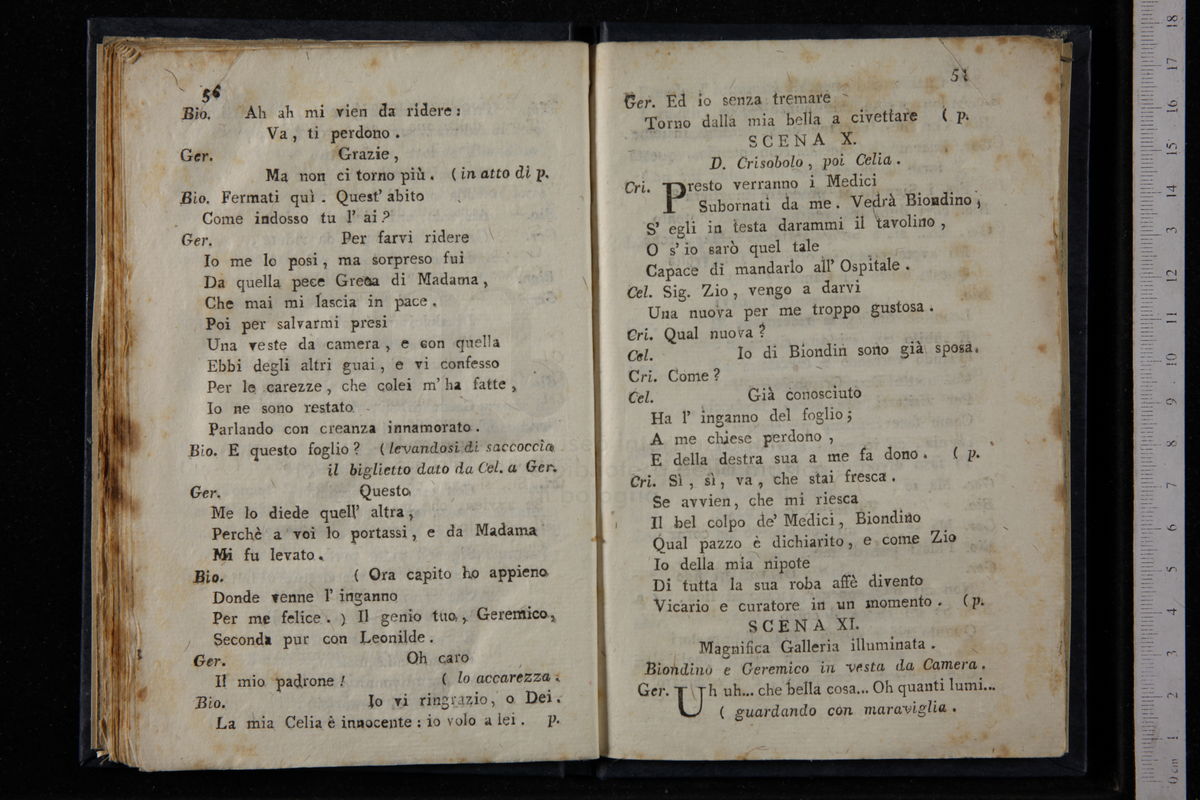 56
Bio. Ah ah mi vien da ridere :
Va , ti perdono .
Ger. Grazie ,
Ma non ci torno più . ( in atto di p.
Bio. Fermati quì . Quest' abito
Come indosso tu l' ai ?
Ger. Per farvi ridere
Io me lo posi , ma sorpreso fui
Da quella pece Greca di Madama ,
Che mai mi lascia in pace .
Poi per salvarmi presi
Una veste da camera , e con quella
Ebbi degli altri guai , e vi confesso
Per le carezze , che colei m' ha fatte ,
Io ne sono restato
Parlando con creanza innamorato .
Bio. E questo foglio ? ( levandosi di saccoccia
il biglietto dato da Cel. a Ger.
Ger. Questo
Me lo diede quell' altra ,
Perchè a voi lo portassi , e da Madama
Mi fu levato .
Bio. ( Ora capito ho appieno
Donde venne l' inganno
Per me felice . ) Il genio tuo , Geremico ,
Seconda pur con Leonilde .
Ger. Oh caro
Il mio padrone ! ( lo accarezza .
Bio. Io vi ringrazio , o Dei .
La mia Celia è innocente : io volo a lei . p.
51
Ger. Ed io senza tremare
Torno dalla mia bella a civettare ( p.
SCENA X.
D. Crisobolo , poi Celia .
Cri. Presto verranno i Medici
Subornati da me . Vedrà Biondino ,
S' egli in testa darammi il tavolino ,
O s' io sarò quel tale
Capace di mandarlo all' Ospitale .
Cel. Sig. Zio , vengo a darvi
Una nuova per me troppo gustosa .
Cri. Qual nuova ?
Cel. Io di Biondin sono già sposa .
Cri. Come ?
Cel. Già conosciuto
Ha l' inganno del foglio ;
A me chiese perdono ,
E della destra sua a me fa dono . ( p.
Cri. Sì , sì , va , che stai fresca .
Se avvien , che mi riesca
Il bel colpo de' Medici , Biondino
Qual pazzo è dichiarito , e come Zio
Io della mia nipote
Di tutta la sua roba affè divento
Vicario e curatore in un momento . ( p.
SCENA XI.
Magnifica Galleria illuminata .
Biondino e Geremico in vesta da Camera .
Ger. Uh uh... che bella cosa... Oh quanti lumi...
( guardando con maraviglia .
0 cm 1 2 3 4 5 6 7 8 9 10 11 12 13 14 15 16 17 18